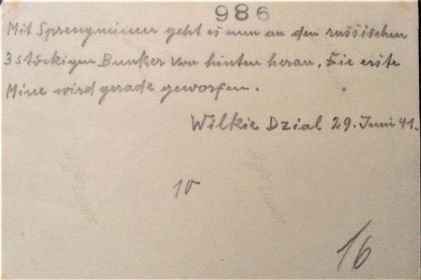 986
Mit Sprengminen geht es nun an den russischen
3 stöckigen Bunker von hinten heran. Die erste
Mine wird gerade geworfen.
Wilkie Dzial 29. Juni 41.
10
16